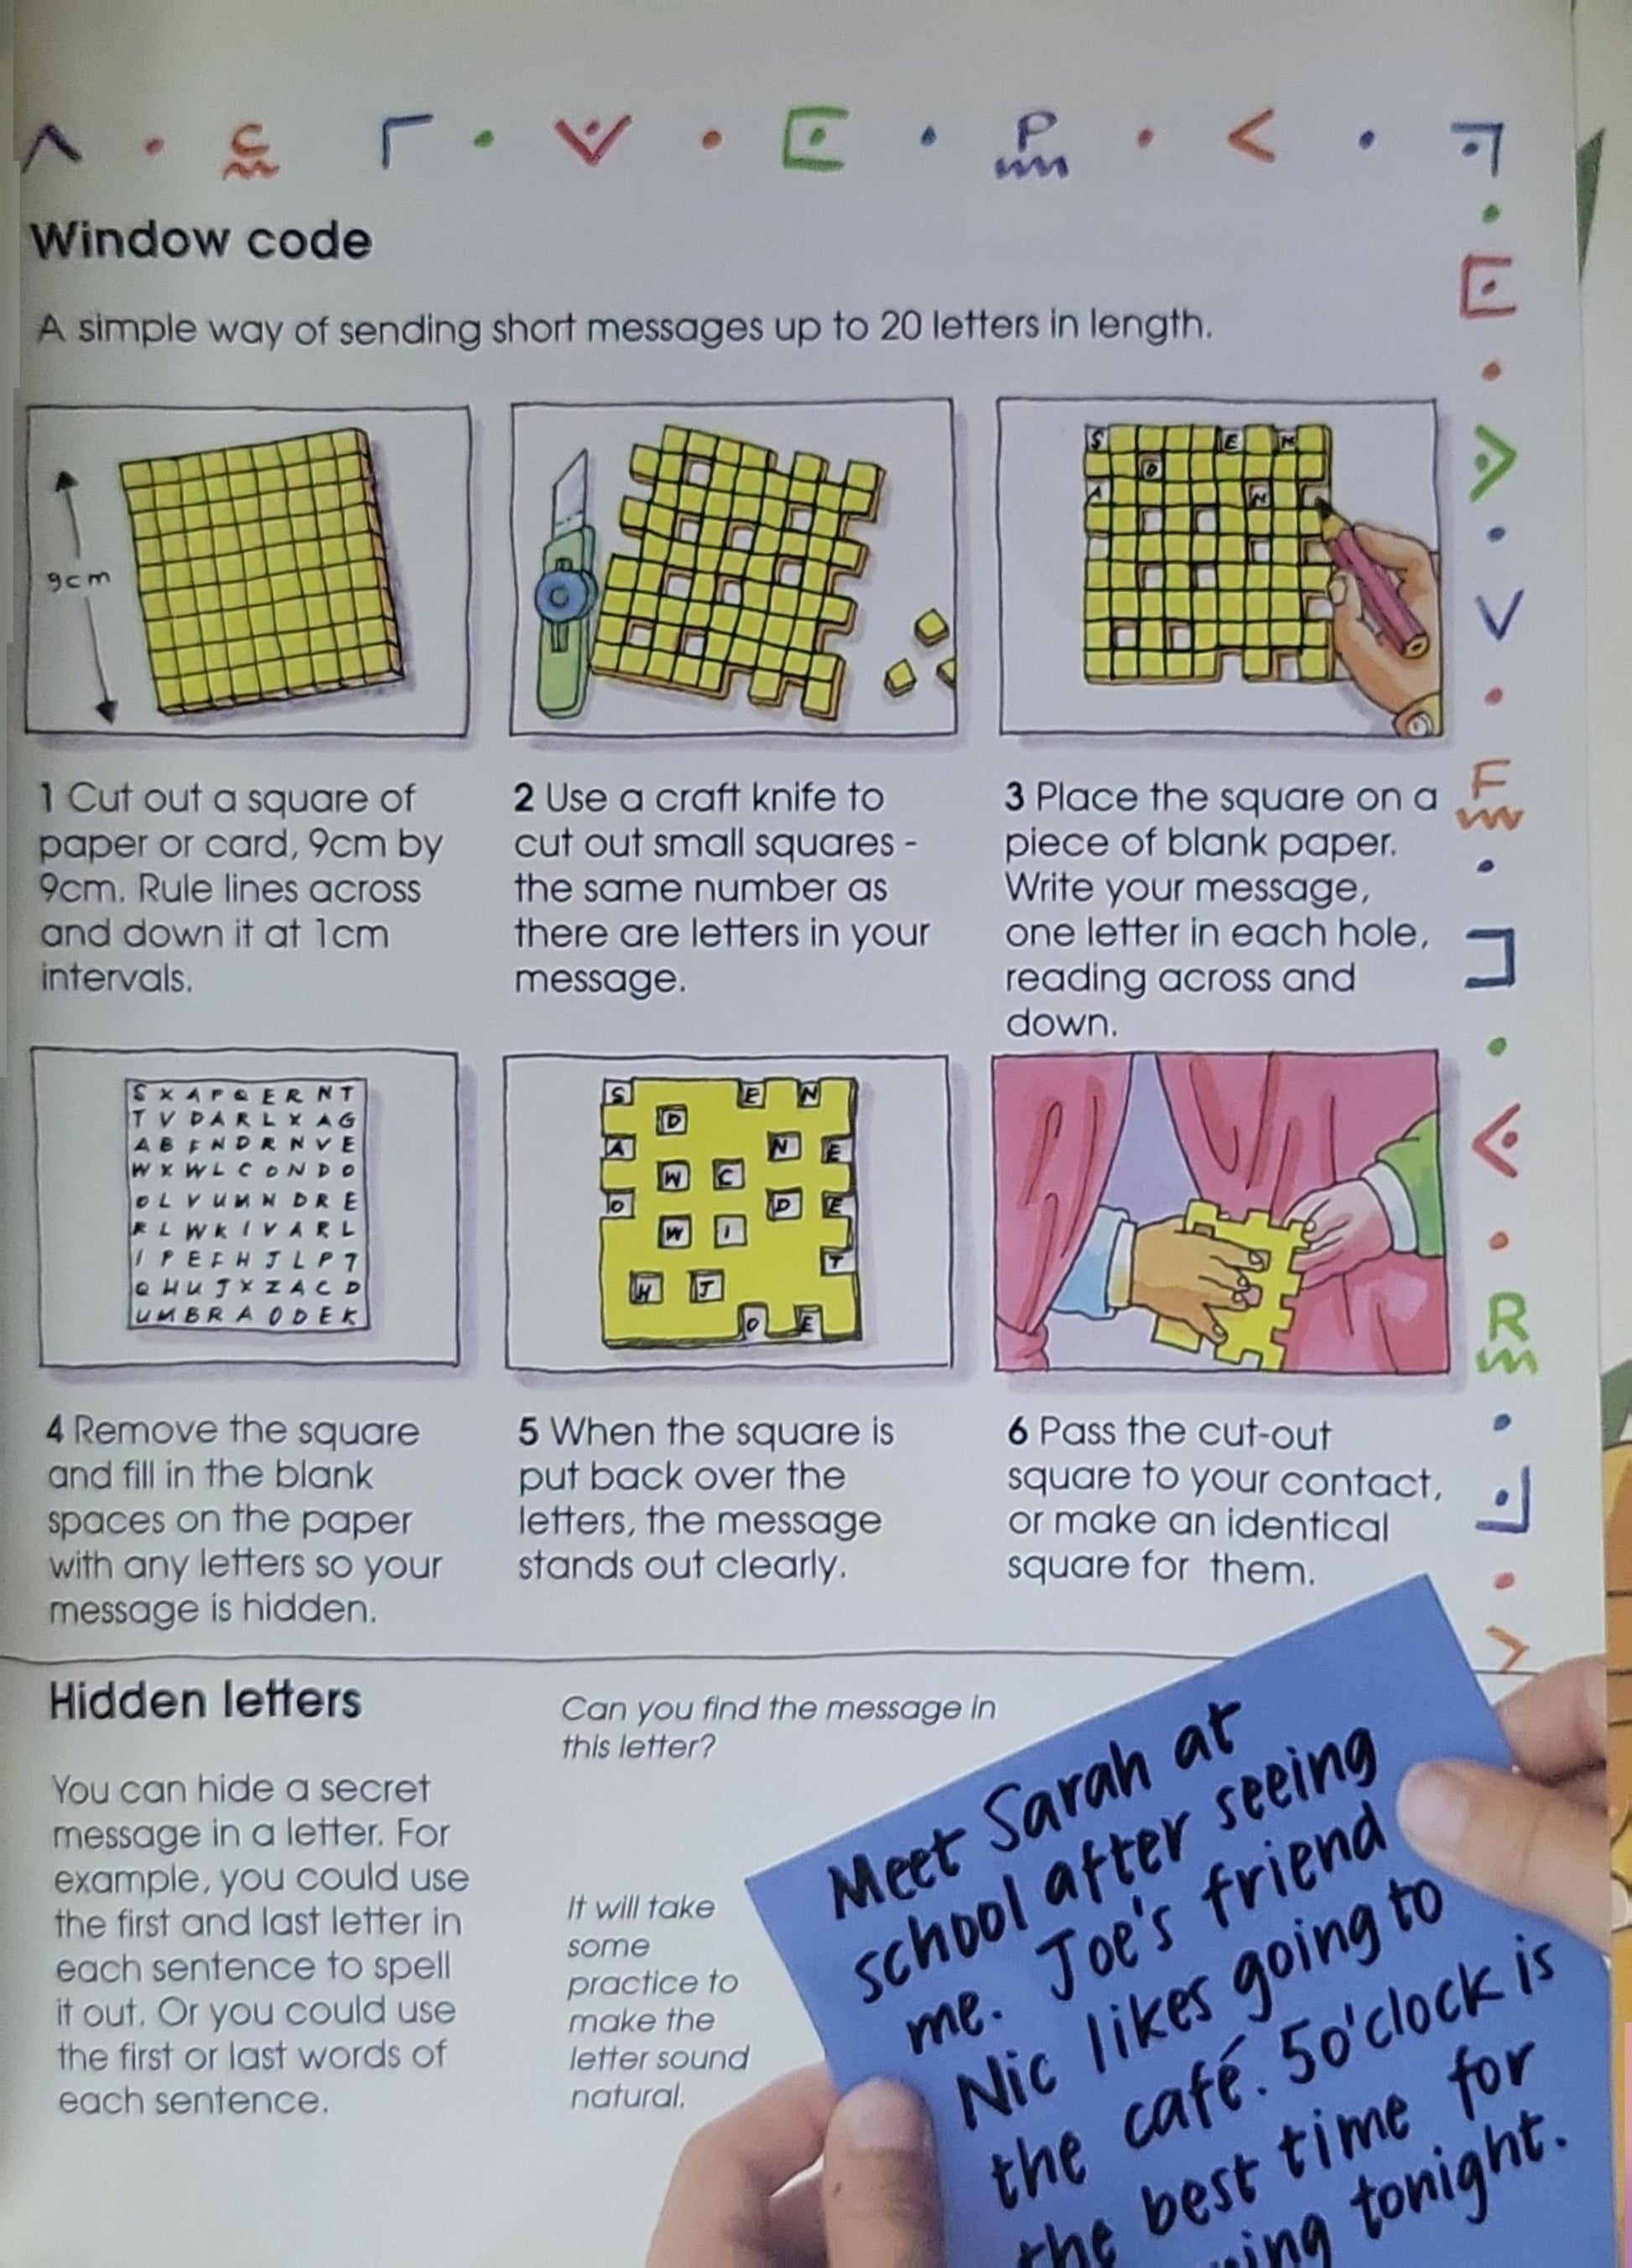 Window code
A simple way of sending short messages up to 20 letters in length.
9cm
S E N
D
A N
1 Cut out a square of
paper or card, 9cm by
9cm. Rule lines across
and down it at 1cm
intervals.
2 Use a craft knife to
cut out small squares -
the same number as
there are letters in your
message.
3 Place the square on a
piece of blank paper.
Write your message,
one letter in each hole,
reading across and
down.
S X A P Q E R N T
T V D A R L X A G
A B F N D R N V E
W X W L C O N D O
O L V U M N D R E
R L W K I V A R L
I P E F H J L P T
Q H U J X Z A C D
U M B R A O D E K
S E N
D
A N E
W C
O D E
W I
T
H J
O E
4 Remove the square
and fill in the blank
spaces on the paper
with any letters so your
message is hidden.
5 When the square is
put back over the
letters, the message
stands out clearly.
6 Pass the cut-out
square to your contact,
or make an identical
square for them.
Hidden letters
You can hide a secret
message in a letter. For
example, you could use
the first and last letter in
each sentence to spell
it out. Or you could use
the first or last words of
each sentence.
Can you find the message in
this letter?
It will take
some
practice to
make the
letter sound
natural.
Meet Sarah at
school after seeing
me. Joe's friend
Nic likes going to
the café. 5o'clock is
the best time for
tonight.
C
P
F
R